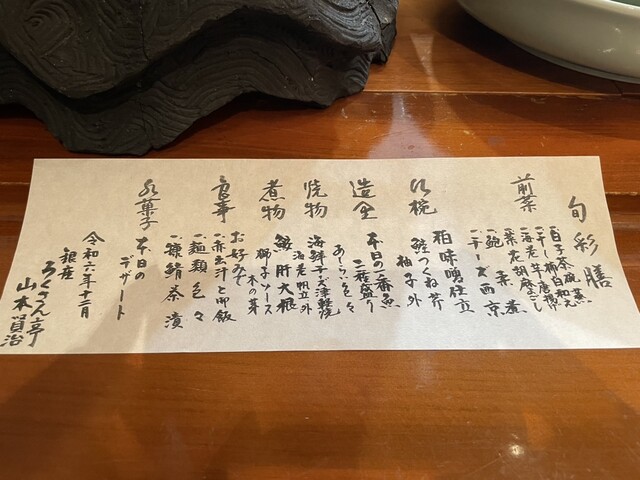 旬彩膳
前菜
一、白子茶碗蒸
一、干し柿白和え
一、海老芋唐揚げ
一、菜花胡麻ごし
一、鮑柔煮
一、チーズ西京
お椀
白味噌仕立
鰹つくね芹
柚子外
造里
本日の鮮魚
二種盛り
あしらい色々
焼物
海鮮千両津軽焼
海老帆立外
煮物
鮟肝大根
獅子ソース
木の芽
食事
お好みで
一、赤出汁と御飯
一、麺類色々
一、糠鯖茶漬
水菓子
本日の
デザート
令和六年十二月
銀座
ろくさん亭
山本賢治